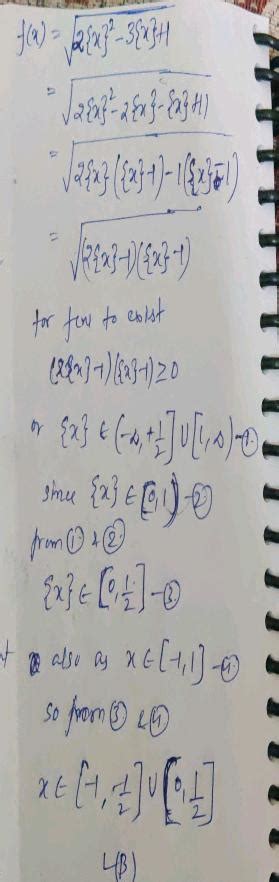 f(x) = √2{x}²-3{x}+1
= √2{x}²-2{x}-{x}+1
= √2{x}({x}-1)-1({x}-1)
= √(2{x}-1)({x}-1)
for fxn to exist
(2{x}-1)({x}-1)≥0
or {x} ∈ (-∞,+1/2]∪[1,∞)-①
since {x} ∈ [0,1)-②
from ① & ②
{x} ∈ [0,1/2]-③
also as x∈[-1,1]-④
so from ③ & ④
x∈[-1,-1/2]∪[0,1/2]
(B)